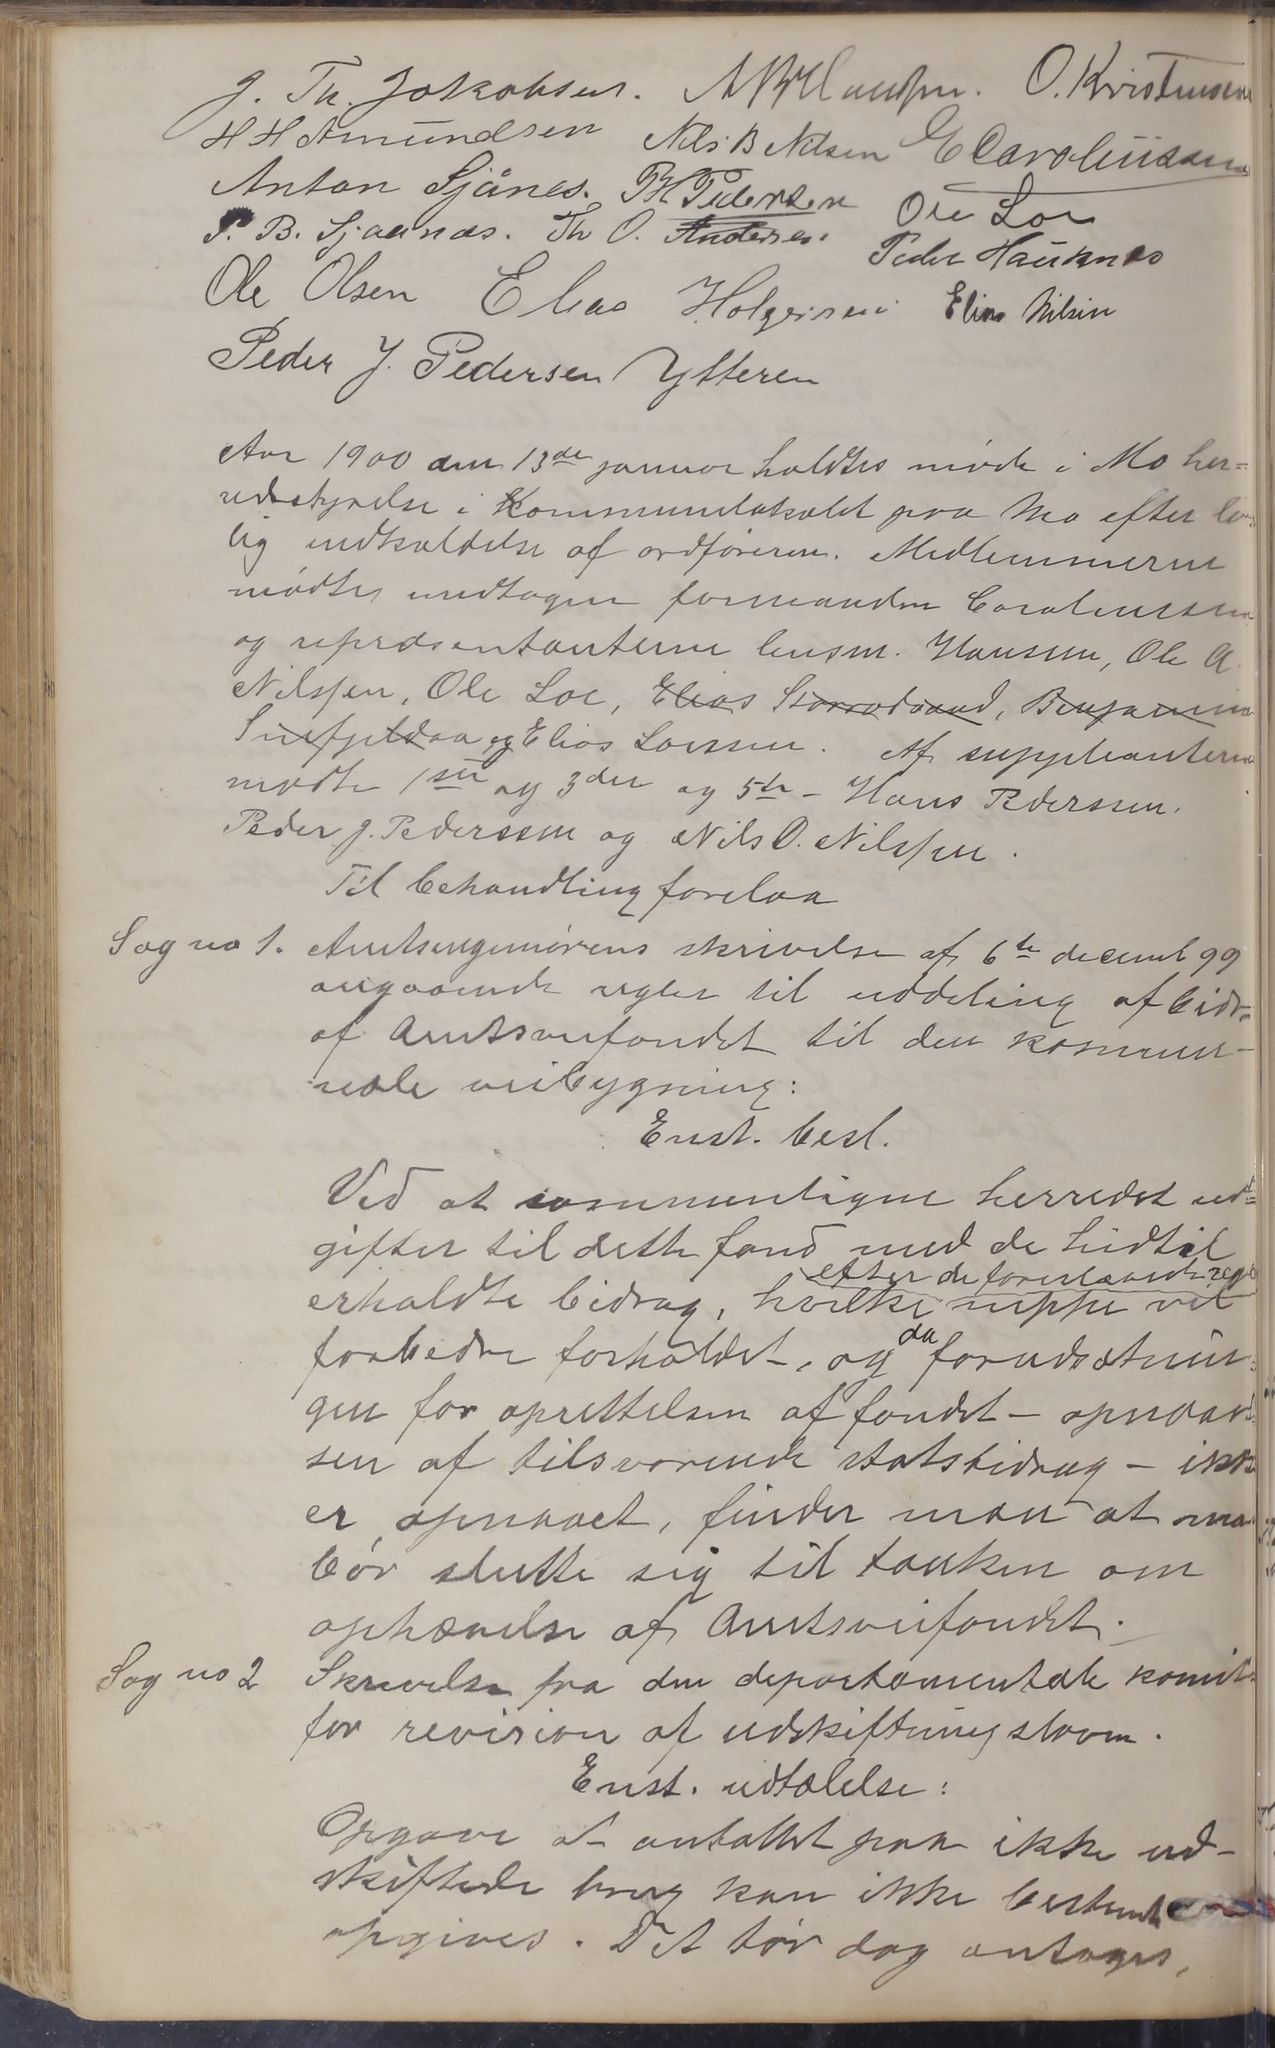 J. Th. Jakobsen. A B Hansen. O. Kristensen
H H Amundsen Nils B Nilsen E Carolinssen
Anton Sjånes. P H Pedersen Ole Loe
P. B. Sjaanæs. Th O. Andersen. Peder Hauknes
Ole Olsen Elias Holgersen Elias Nilsen
Peder J. Pedersen Ytteren
Aar 1900 den 13de januar holdtes møde i Mo her-
redsstyrelse i Kommunelokalet paa Mo efter lov
lig indkaldelse af ordføreren. Medlemmerne
mødte undtagen formanden Carolinssen
og repræsentanterne lensm. Hanssen, Ole A.
Nilssen, Ole Loe, Elias Storrødvand, Benjamin
Snefjeldaa og Elias Larssen. Af suppleanterne
mødte 1ste og 3die og 5te - Hans Pederssen.
Peder J. Pederssen og Nils O. Nilssen.
Til behandling forelaa
Sag no 1. Amtsingeniørens skrivelse af 6te decemb 99
angaaende regler til uddeling af bidr.
af Amtsveifondet til den kommu-
nale veibygning:
Enst. besl.
Ved at sammenligne herredet ud-
gifter til dette fond med de hidtil
efter de foreslaaede regl
erholdte bidrag, hvilke neppe vil
forbedre forholdet, og da forudsætnin-
gen for oprettelsen af fondet - opnaael
sen af tilsvarende statsbidrag - ikke
er opnaaet, finder man at ma
bør slutte sig til tanken om
ophævelse af Amtsveifondet.
Sag no 2 Skrivelse fra den departementale komite
for revision af udskiftningsloven.
Enst. udtalelse:
Opgave over antallet paa ikke ud-
skiftede brug kan ikke bestemt
opgives. Det tør dog antages,